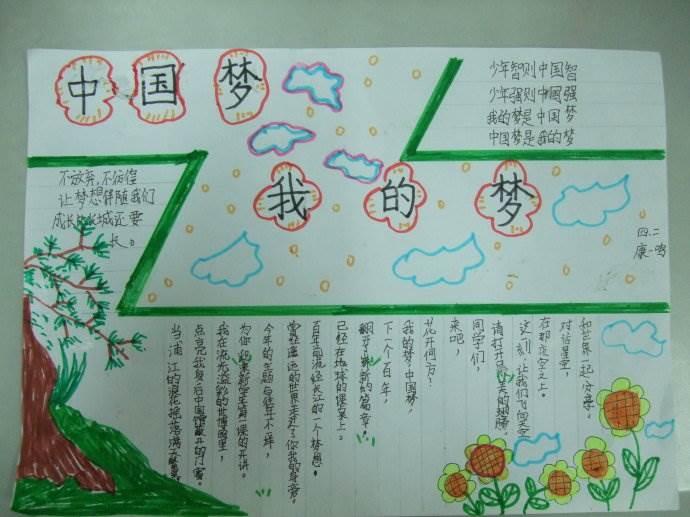 中国梦
我的梦
少年智则中国智
少年强则中国强
我的梦是中国梦
中国梦是我的梦
不放弃,不彷徨
让梦想伴随我们
成长
长。
四.二
康一鸣
和世界一起分享。
对话星空,
在那夜空之上。
这一刻,让我们飞向天空
请打开
的翅膀。
同学们,
来吧,
花开何方?
我的梦,中国梦,
下一个百年,
翻开了崭新的篇章。
已经在地球的课桌上。
百年前流经长江的一个梦想。
曾经遥远的世界走近了你我的身旁。
今年的主题与往年不一样,
为你
第一课的开讲。
我在流光溢彩的世博园里,
点亮我身后中国馆敞开的门窗。
当浦江的浪花摇落满天